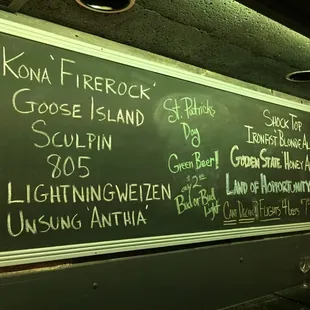 KONA 'FIREROCK'
GOOSE ISLAND
SCULPIN
805
LIGHTNINGWEIZEN
UNSUNG 'ANTHIA'
St. Patricks
Day
Green Beer!
Bud or Bud
Light
SHOCK TOP
IRONFIST 'BLONDE AL
GOLDEN STATE 'HONEY A
LAND OF HOPPORTUNITY
FLIGHTS 4 beers